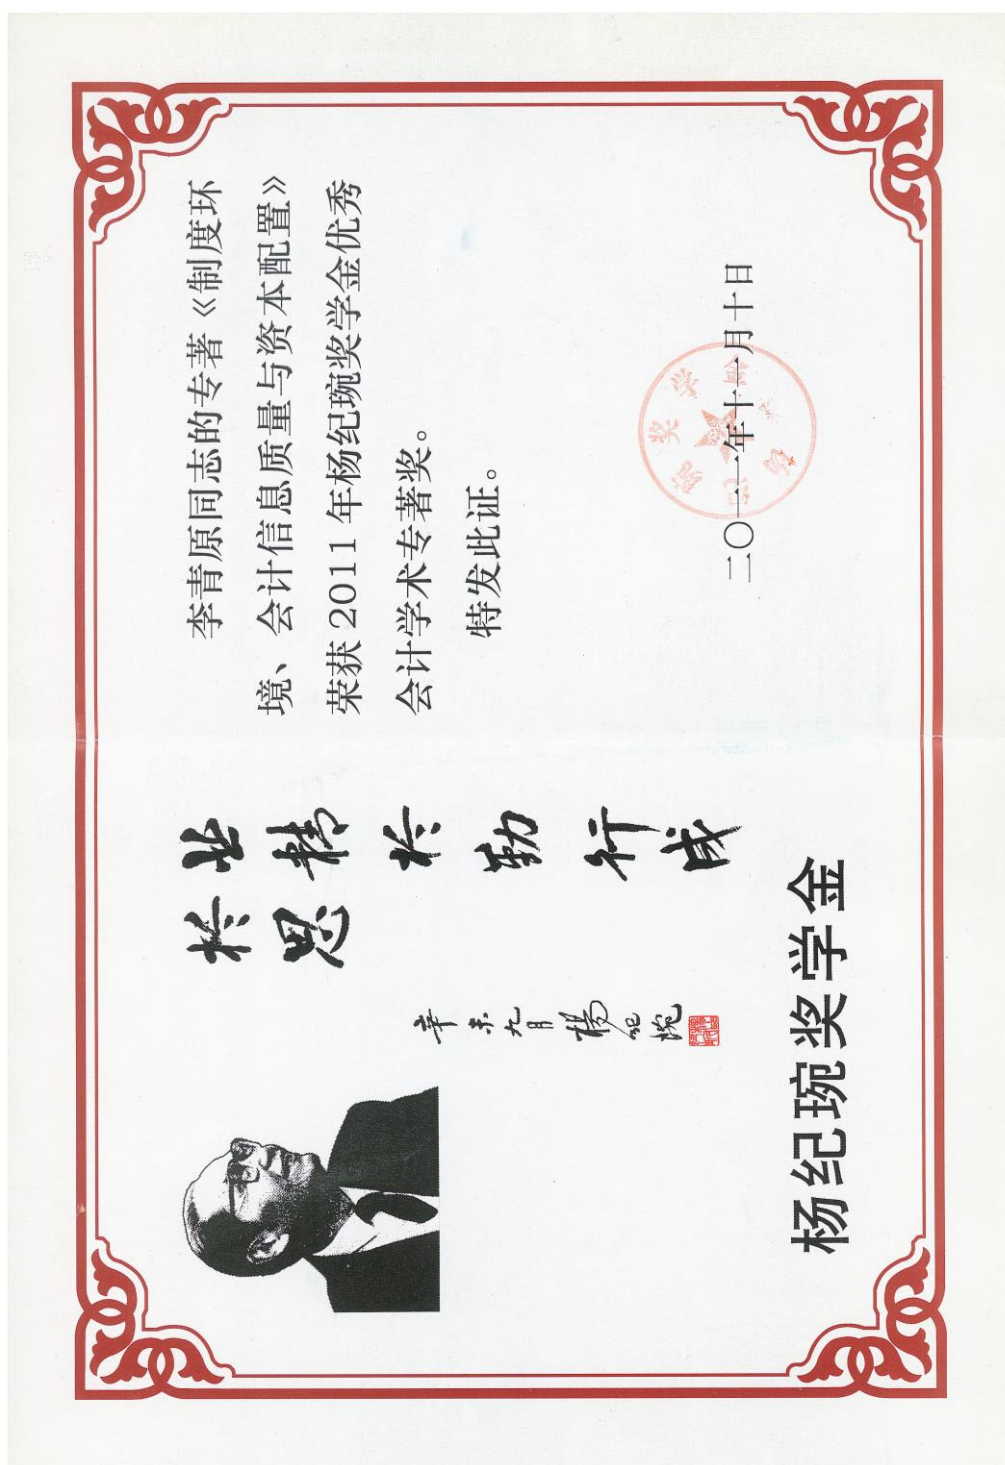 业精於勤行成
於思
辛未九月楊紀琬
杨纪琬奖学金
李青原同志的专著《制度环
境、会计信息质量与资本配置》
荣获 2011 年杨纪琬奖学金优秀
会计学术专著奖。
特发此证。
二〇一一年十一月十日